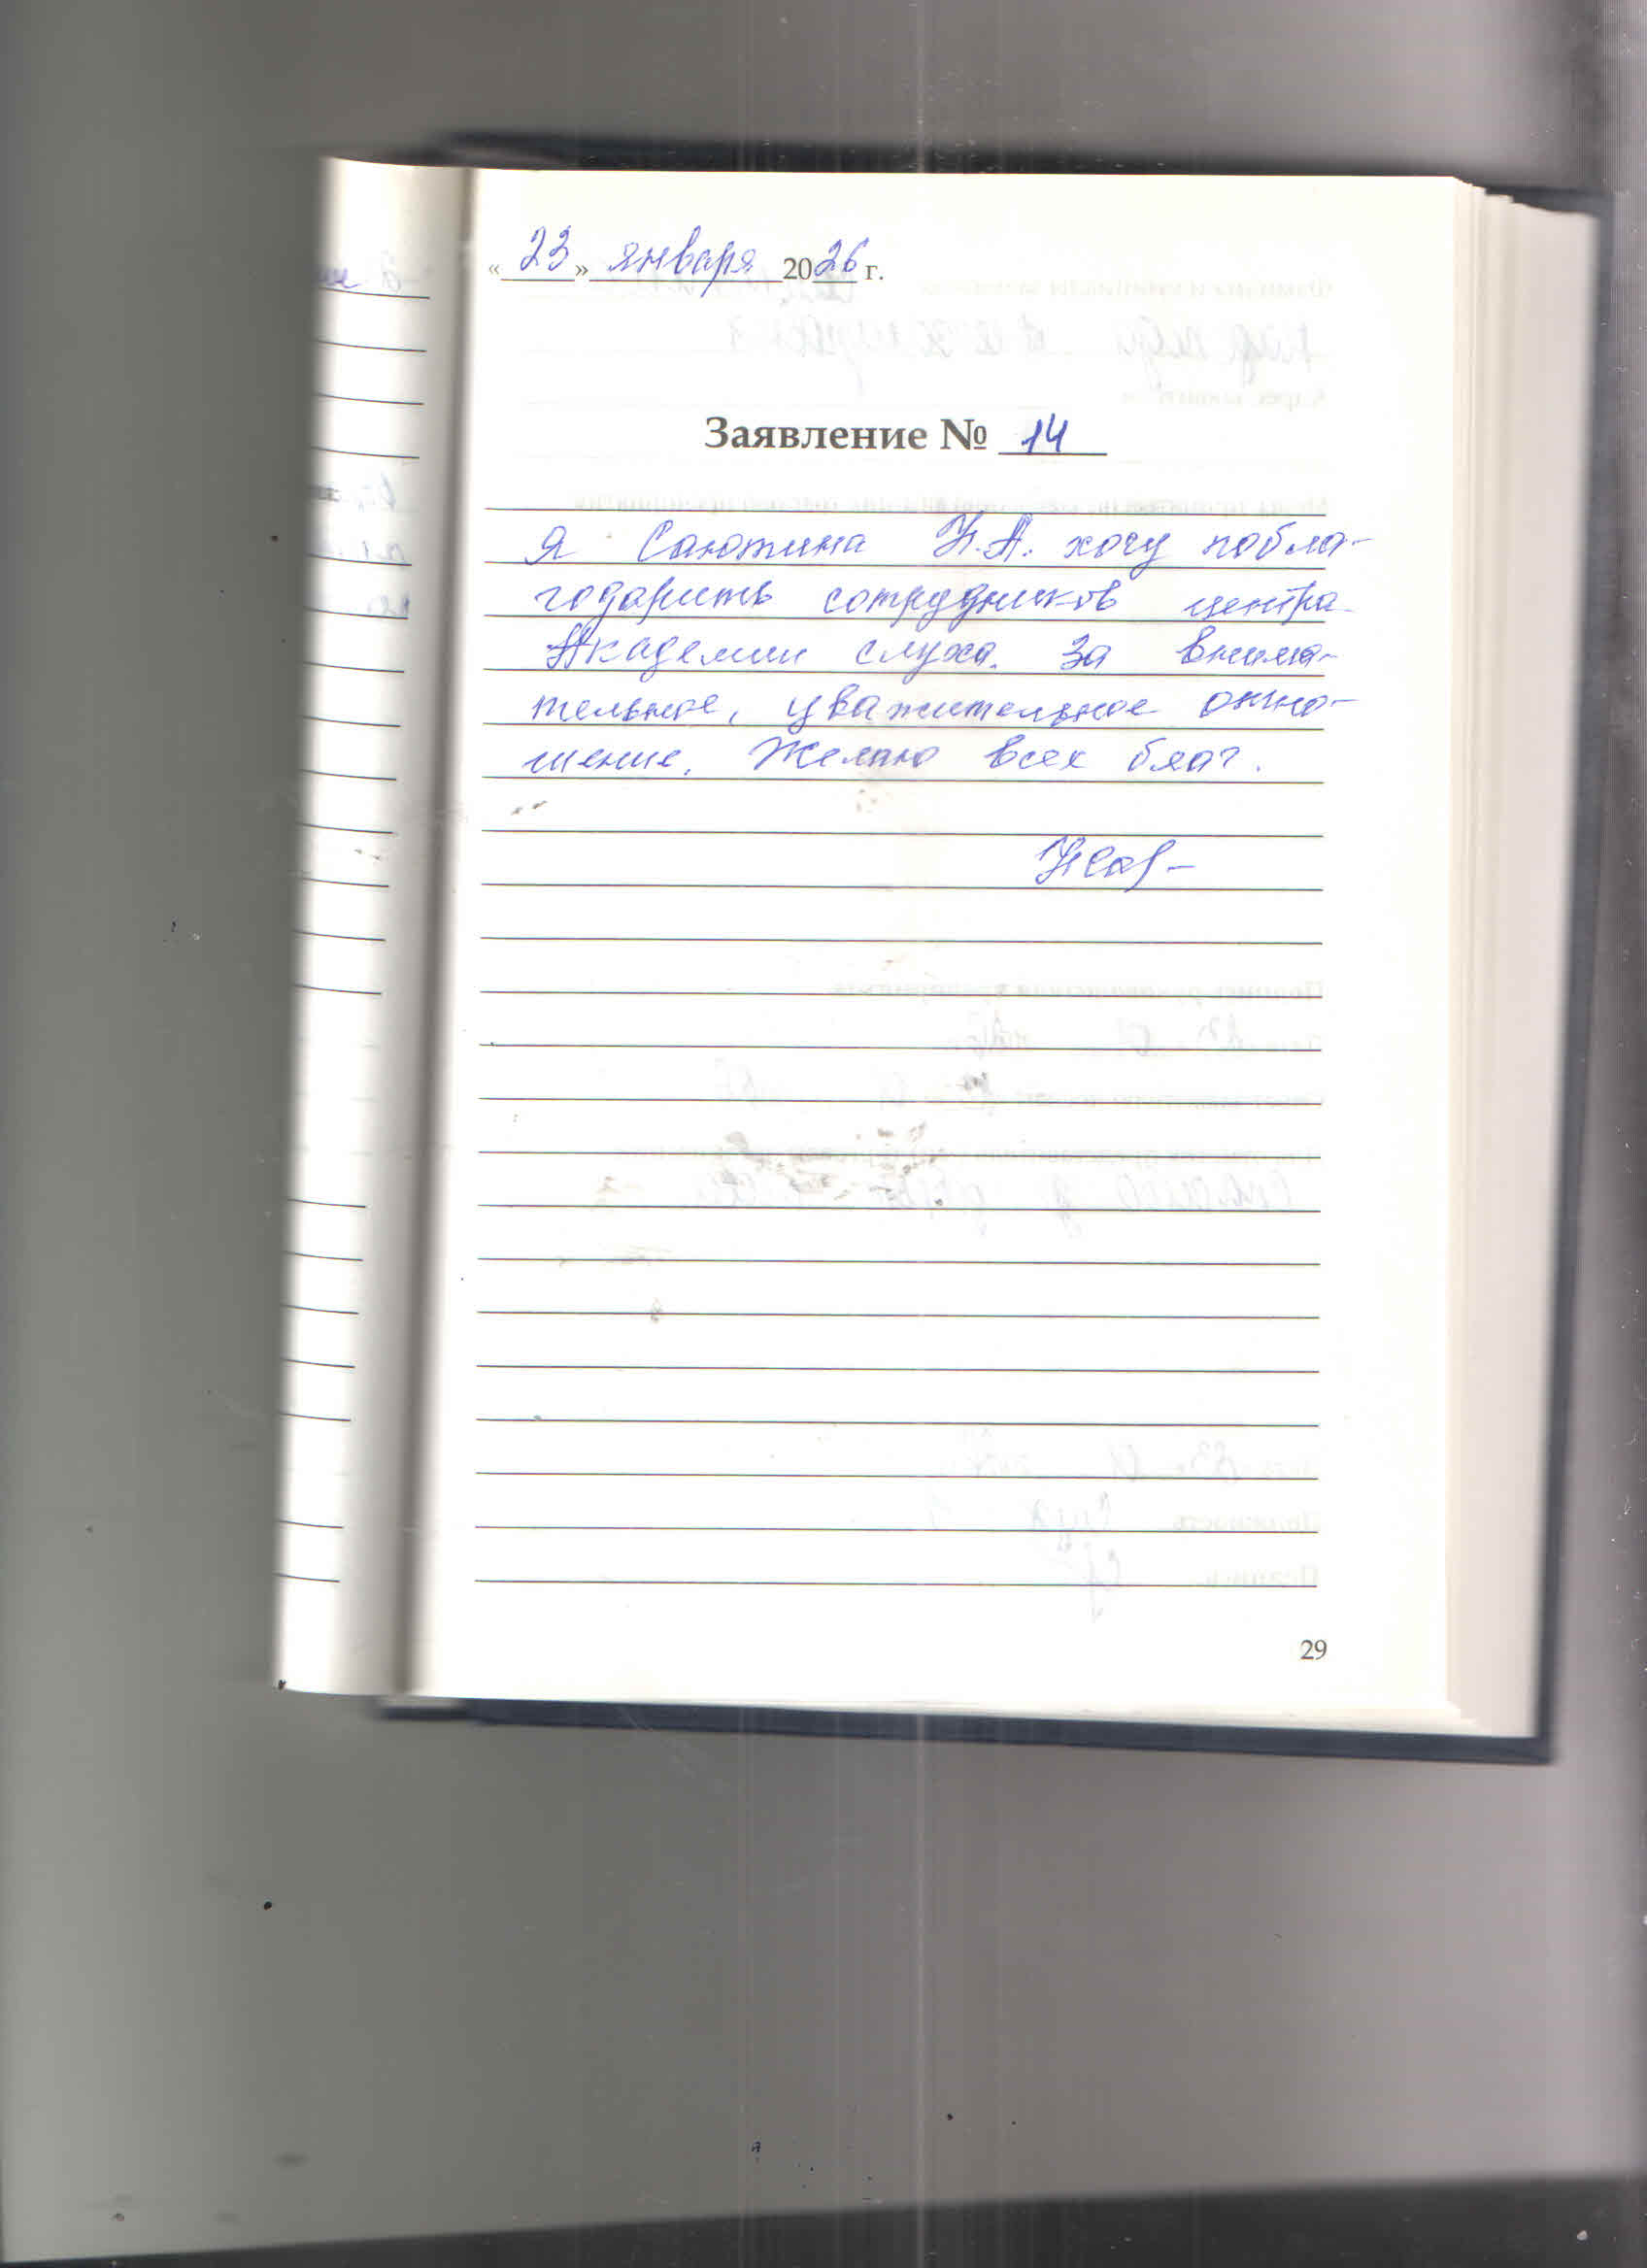 « 23 » января 2026 г.
Заявление № 14
Я Саютина Н.А. хочу побла-
годарить сотрудников центра
Академии слуха. За внима-
тельное, уважительное отно-
шение. Желаю всех благ.
29